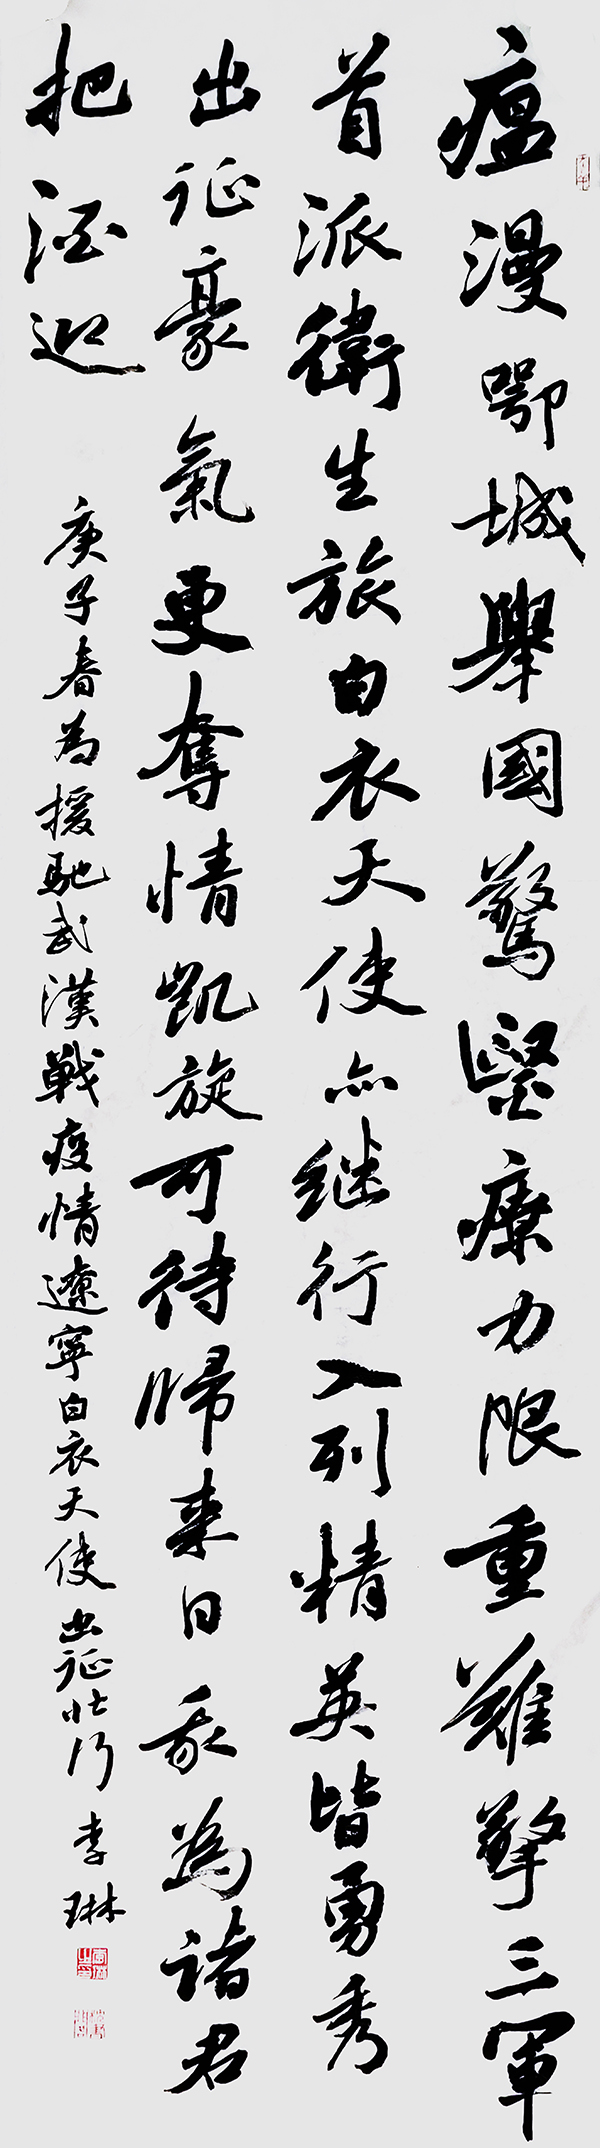 瘟漫鄂城舉國驚醫療力限重難擎三軍
首派衛生旅白衣天使亦继行入列精英皆勇秀
出征豪氣更奪情凯旋可待歸来日我為諸君
把酒迎
庚子春為援馳武漢戰疫情遼寧白衣天使出征壮行 李琳